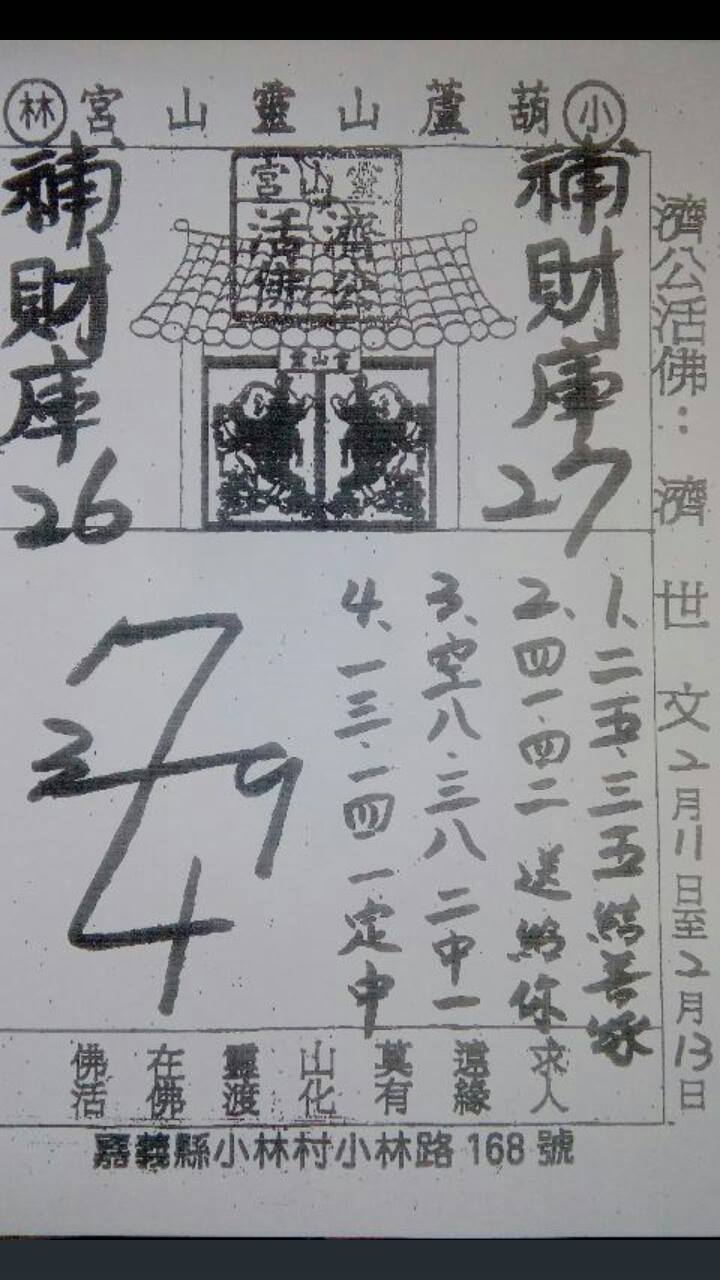 小葫蘆山靈山宮林
濟公活佛：濟世文2月11日至2月13日
補財庫27
靈山宮
濟公
活佛
靈山宮
補財庫26
1、二五、三五結善家
2、四一、四二送給你
3、空八、三八二中一
4、一三、一四一定中
7
3
9
4
求人
遠緣
莫有
山化
靈渡
在佛
佛活
嘉義縣小林村小林路168號